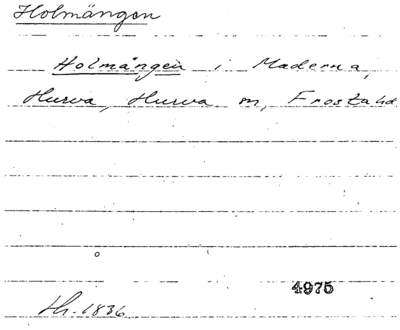 Holmängen
Holmängen i Maderna,
Hurva, Hurva sn, Frosta hd
4975
Lh. 1836